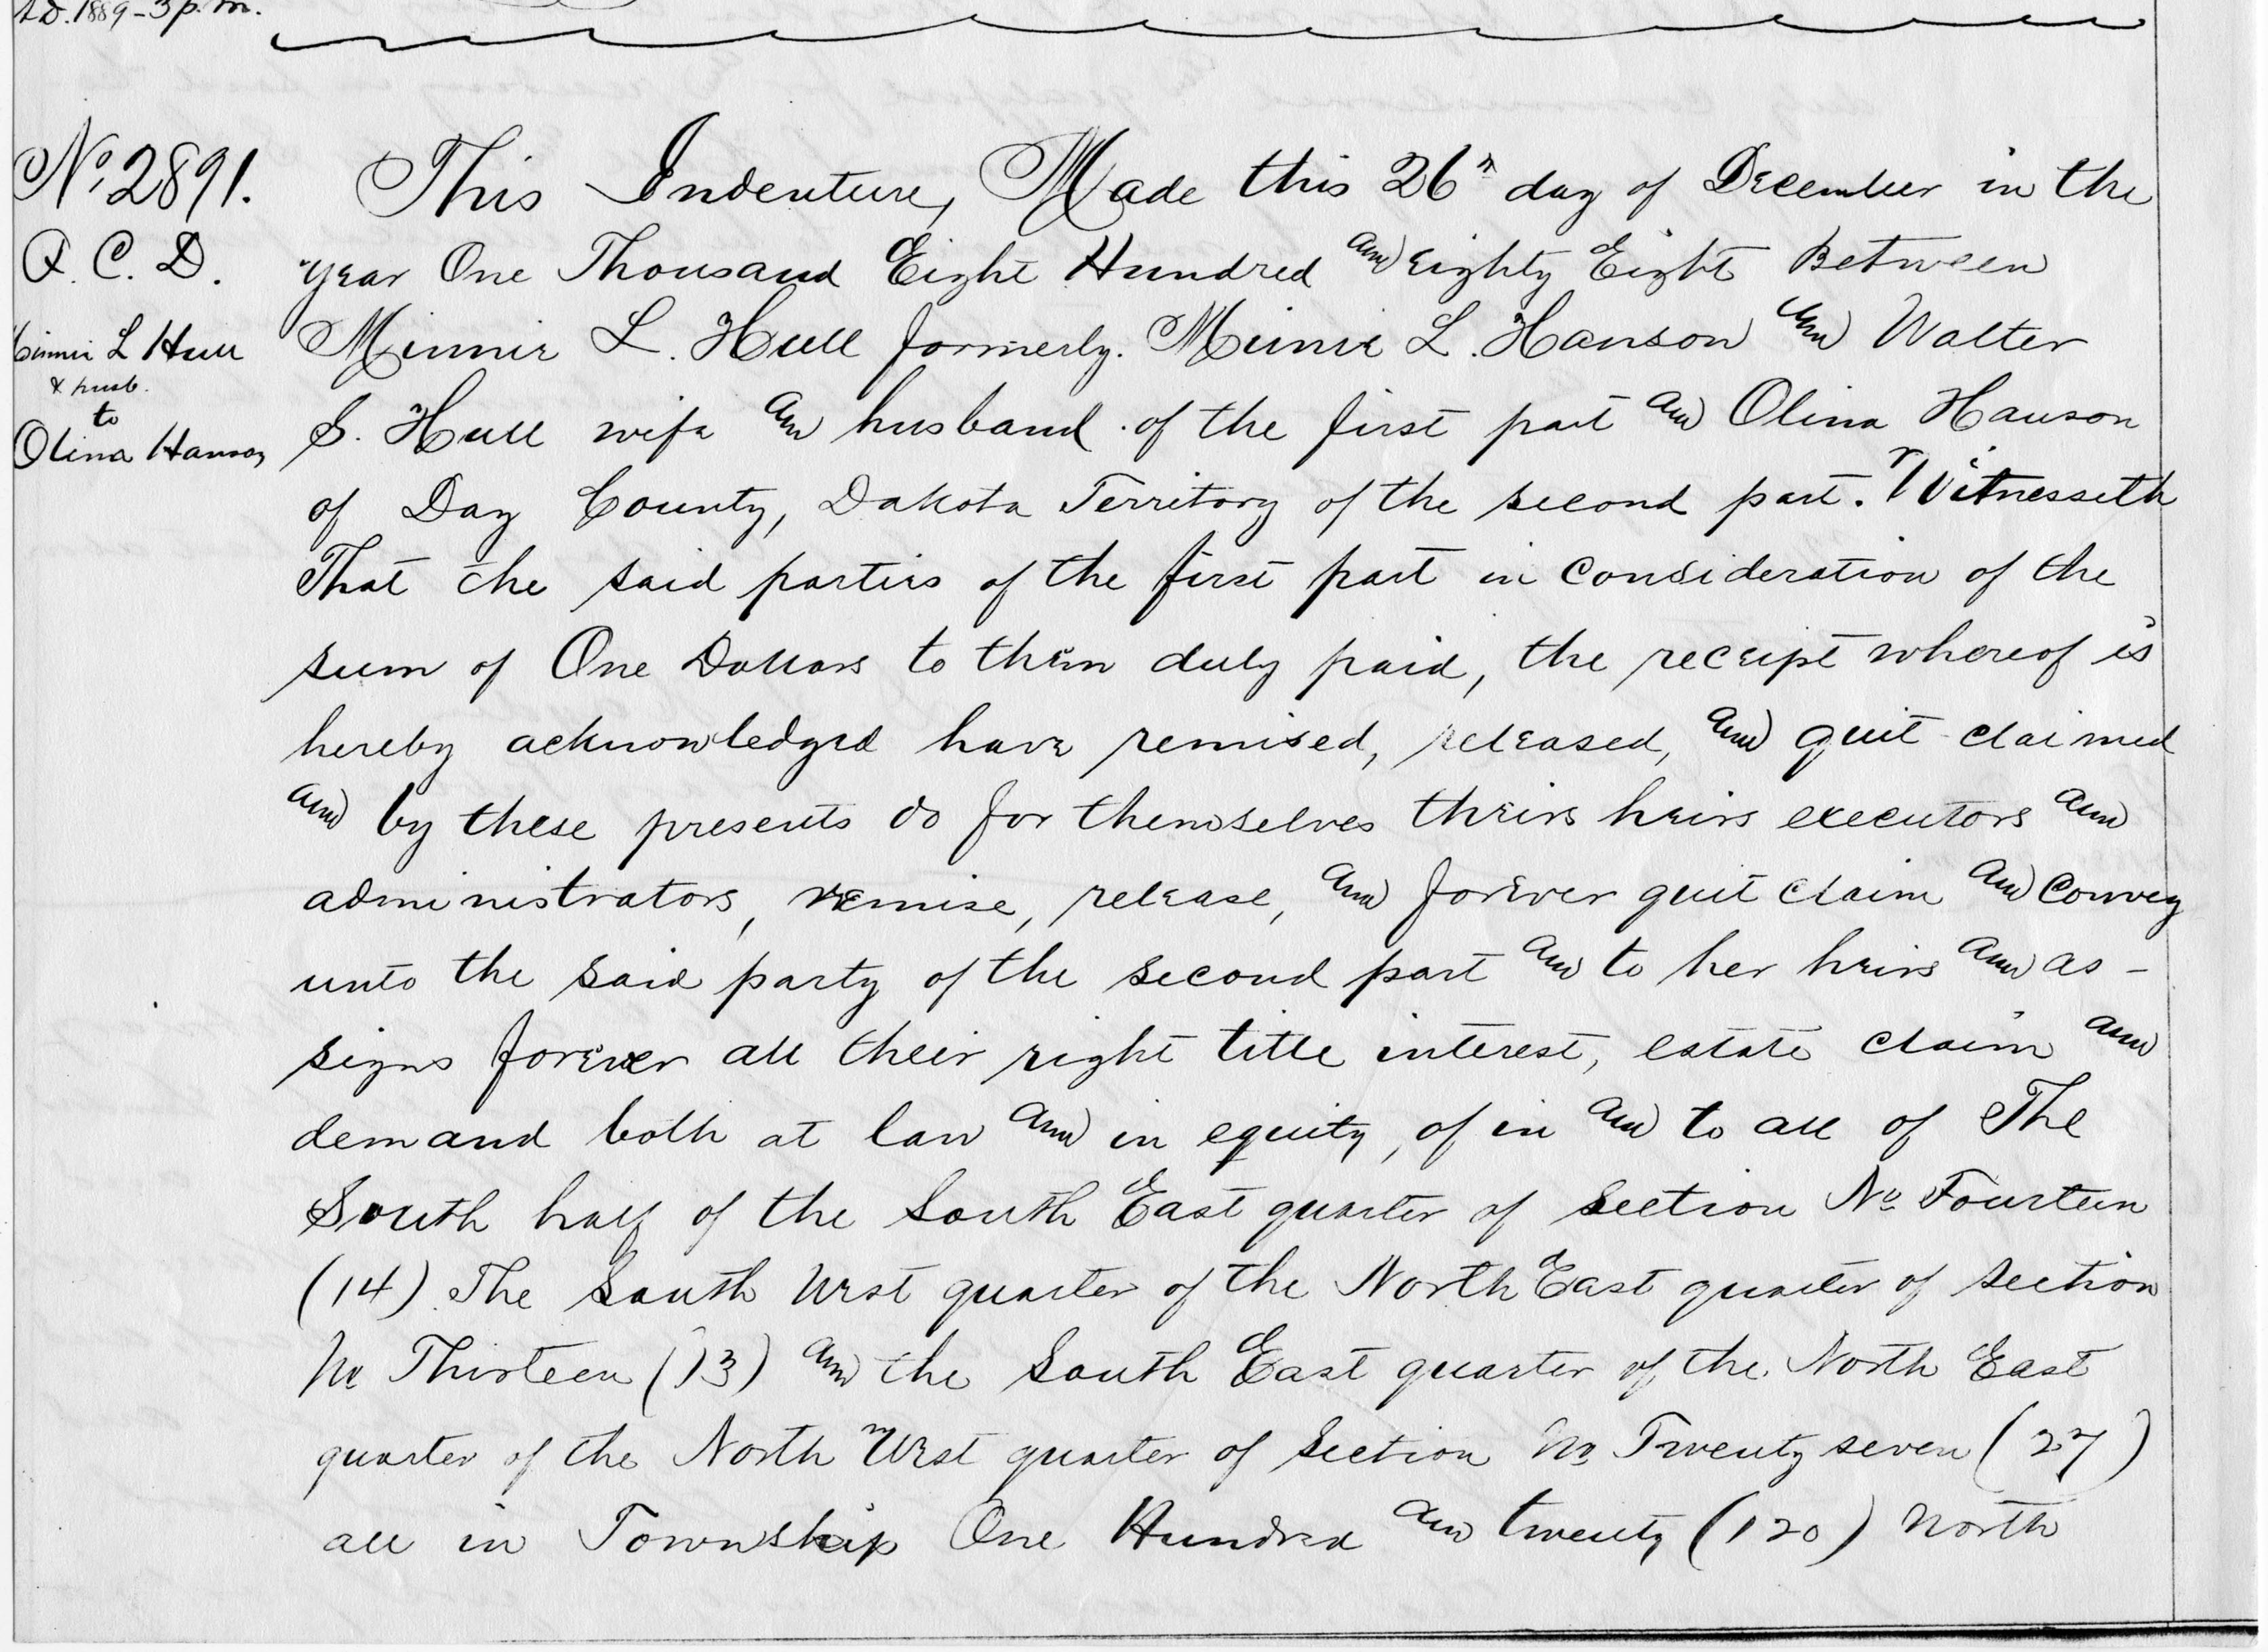 A.D. 1889 - 3 p. m.
No. 2891.
Q. C. D.
Minnie L Hull
& husb.
to
Olina Hanson
This Indenture, Made this 26th day of December in the
year One Thousand Eight Hundred and eighty Eight Between
Minnie L. Hull formerly. Minnie L. Hanson and Walter
S. Hull wife and husband of the first part and Olina Hanson
of Day County, Dakota Territory of the second part. Witnesseth
That the said parties of the first part in consideration of the
sum of One Dollars to them duly paid, the receipt whereof is
hereby acknowledged have remised, released, and quit claimed
and by these presents do for themselves theirs heirs executors and
administrators, remise, release, and forever quit claim and convey
unto the said party of the second part and to her heirs and as-
signs forever all their right title interest, estate claim and
demand both at law and in equity, of in and to all of The
South half of the South East quarter of section No Fourteen
(14) The South West quarter of the North East quarter of section
No Thirteen (13) and the South East quarter of the North East
quarter of the North West quarter of Section No Twenty seven (27)
all in Township One Hundred and twenty (120) North